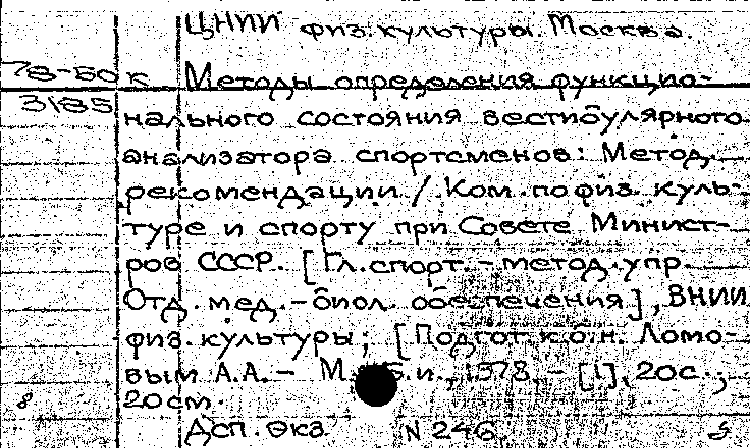 ЦНИИ физ. культуры. Москва.
78-50 к Методы определения функцио-
3185
нального состояния вестибулярного
анализатора спортсменов: Метод.
рекомендации / Ком. по физ. куль-
туре и спорту при Совете Минист-
ров СССР. [Гл. спорт.-метод. упр.
Отд. мед.-биол. обеспечения], ВНИИ
физ. культуры; [Подгот. к.б.н. Ломо-
вым А.А. - М.: Б.и., 1978. - [1], 20с.;
8 20см.
Дсп. Экз. N 246